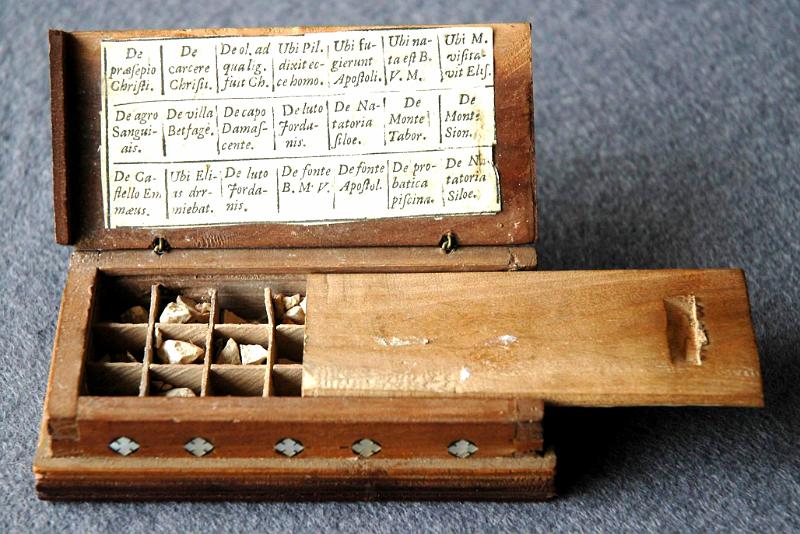 De
præſepio
Chriſti.
De
carcere
Chriſti.
De ol. ad
qua lig.
fuit Ch.
Ubi Pil.
dixit ec-
ce homo.
Ubi fu-
gierunt
Apoſtoli.
Ubi na-
ta eſt B.
V. M.
Ubi M.
viſita-
vit Eliſ.
De agro
Sangui-
ais.
De villa
Betfage.
De capo
Damaſ-
cente.
De luto
Jorda-
nis.
De Na-
tatoria
ſiloe.
De
Monte
Tabor.
De
Monte
Sion.
De Ca-
ſtello Em
mæus.
Ubi Eli-
as drr-
miebat.
De luto
Jorda-
nis.
De fonte
B. M. V.
De fonte
Apoſtol.
De pro-
batica
piſcina.
De Na-
tatoria
Siloe.